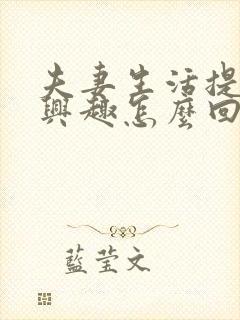 夫妻生活提
興趣怎麼回
藍莹文